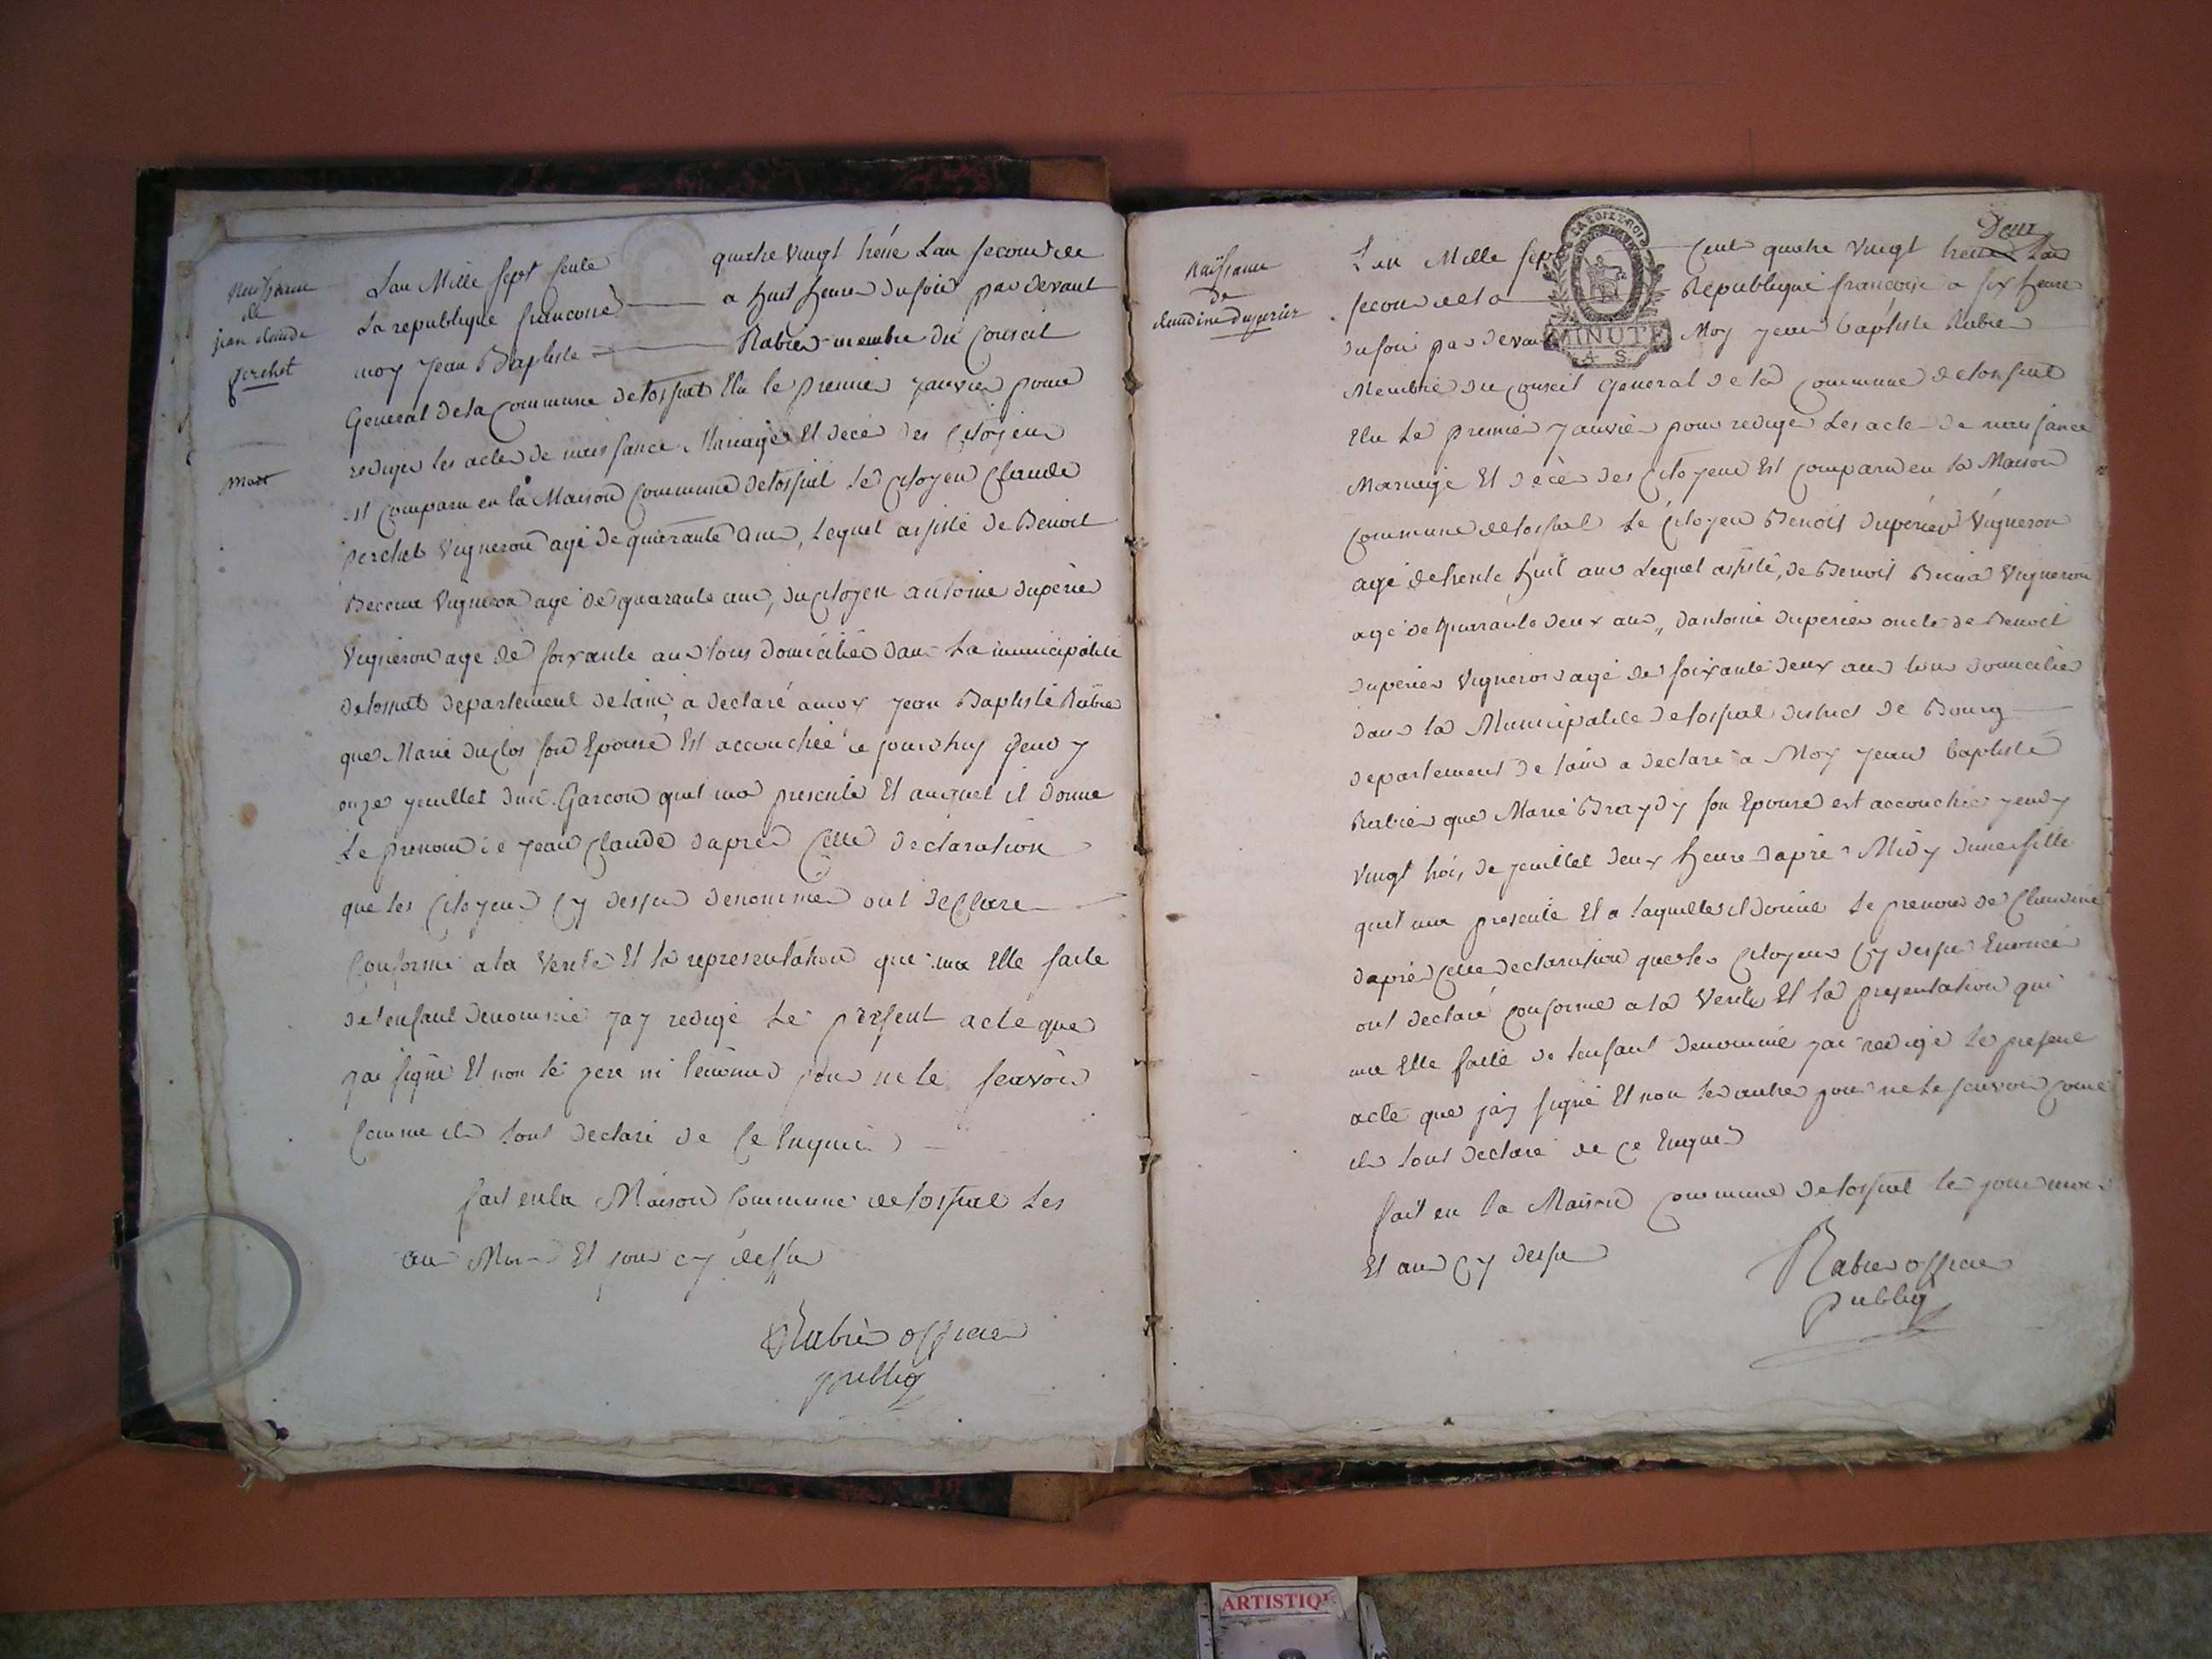 naissance
de
jean claude
perchet
mort
Lan Mille sept sents quatre vingt treize Lan second de
La republique francoise a huit heure du soir par devant
moy jean Baptiste Rabier membre du Conseil
General de la Commune de tossiat Elu le premier janvier pour
rediger les acte de naissance Mariage Et decé des Citoyens
Est Comparu en la Maison Commune de tossiat Le Citoyen Claude
perchet Vigneron agé de quarante ans, Lequel assisté de Benoit
Vigneron agé de quarante ans, du Citoyen antoine duperier
Vigneron agé de soixante ans tous domicilié dans La municipalité
de tossiat departement de lain a declaré a moy jean Baptiste Rabier
que Marie duclos son Epouse Est accouchée ce jourdhuy jeudy
onze jeuillet dun Garcon quil ma presenté Et auquel il donne
Le prenom de jean Claude daprès Cette declaration
que les Citoyens Cy dessus denommes ont declare
Conforme a la verité Et la representation qui ma Elle faite
de lenfant denommé jay redigé Le present acte que
jai signé Et non le pere ni pour ne le scavoir
Comme ils lont declaré de Ce Enquis
fait en la Maison Commune de tossiat Les
an Mois Et jour cy dessu
Rabier officier
publiq
Deux
naissance
de
claudine duperier
Lan Mille sept Cents quatre vingt treize Lan
second de la Republique francoise a six heure
LA LOI ET LE ROI
MINUTE
4 S.
du soir par devant Moy jean baptiste Rabier
Membre du Conseil General de la Commune de tossiat
Elu Le premier janvier pour rediger Les acte de naissance
Mariage Et decè des Citoyens Est Comparu en la Maison
Commune de tossiat Le Citoyen Benoit duperier Vigneron
agé de trente huit ans Lequel assisté, de Benoit Vigneron
agé de quarante deux ans, dantoine duperier oncle de Benoit
duperier Vigneron agé de soixante deux ans tous domicilié
dans la Municipalité de tossiat district de Bourg
departement de lain a declaré a Moy jean baptiste
Rabier que Marie son Epouse est accouchée jeudy
Vingt trois de jeuillet deux heure daprè Midy dune fille
quil ma presenté Et a laquelle il donne Le prenom de Claudine
daprès cette declaration que les Citoyens Cy dessu Enoncé
ont declaré Conforme a la Verité Et la presentation qui
ma Elle faite de lenfant denommé jai redigé Le present
acte que jay signé Et non les autre pour ne Le scavoir Come
ils lont declaré de Ce Enquis
fait en la Maison Commune de tossiat les jour mois
Et an Cy dessu
Rabier officier
publiq
ARTISTIQ